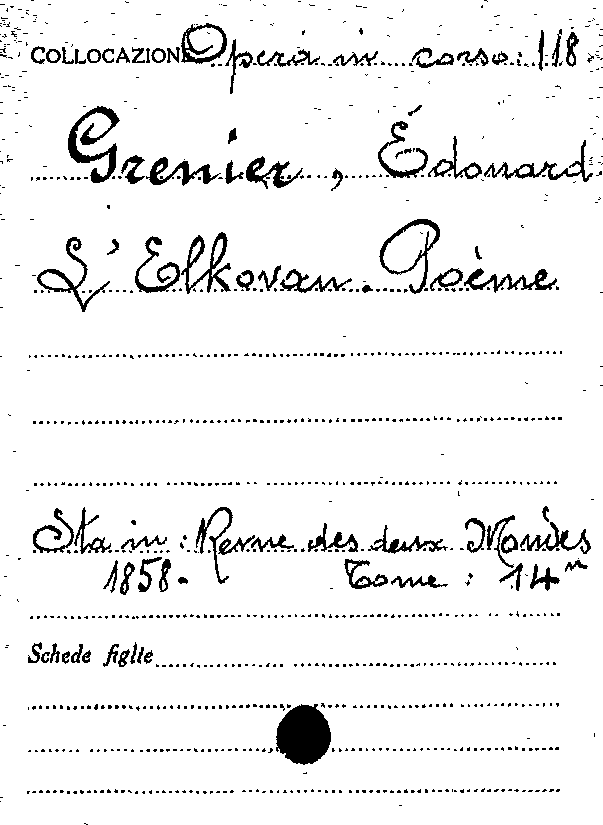 COLLOCAZIONE Opera in corso: 118.
Grenier, Édouard
L'Elkovan. Poème
Sta in: Revue des deux Mondes
1858. Tome: 14ⁿ
Schede figlie